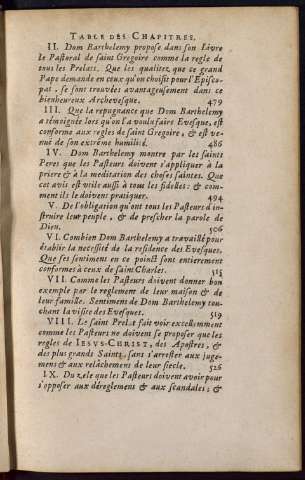 TABLE DES CHAPITRES.
II. Dom Barthelemy propose dans son Livre
le Pastoral de saint Gregoire comme la regle de
tous les Prelats. Que les qualitez, que ce grand
Pape demande en ceux qu'on choisit pour l'Episco-
pat, se sont trouvées avantageusement dans ce
bienheureux Archevesque. 479
III. Que la repugnance que Dom Barthelemy
a témoignée lors qu'on l'a voulu faire Evesque, est
conforme aux regles de saint Gregoire, & est ve-
nuë de son extréme humilité. 486
IV. Dom Barthelemy montre par les saints
Peres que les Pasteurs doivent s'appliquer à la
priere & à la meditation des choses saintes. Que
cet avis est utile aussi à tous les fidelles: & com-
ment ils le doivent pratiquer. 494
V. De l'obligation qu'ont tous les Pasteurs d'in-
struire leur peuple, & de prescher la parole de
Dieu. 506
VI. Combien Dom Barthelemy a travaillé pour
établir la necessité de la residence des Evesques.
Que ses sentiment en ce poinct sont entierement
conformes à ceux de saint Charles. 513
VII. Comme les Pasteurs doivent donner bon
exemple par le reglement de leur maison & de
leur famille. Sentiment de Dom Barthelemy tou-
chant la visite des Evesques. 519
VIII. Le saint Prelat fait voir excellemment
comme les Pasteurs ne doivent se proposer que les
regles de IESUS-CHRIST, des Apostres, &
des plus grands Saints, sans s'arrester aux juge-
mens & aux relâchemens de leur siecle. 526
IX. Du zele que les Pasteurs doivent avoir pour
s'opposer aux déreglemens & aux scandales; &